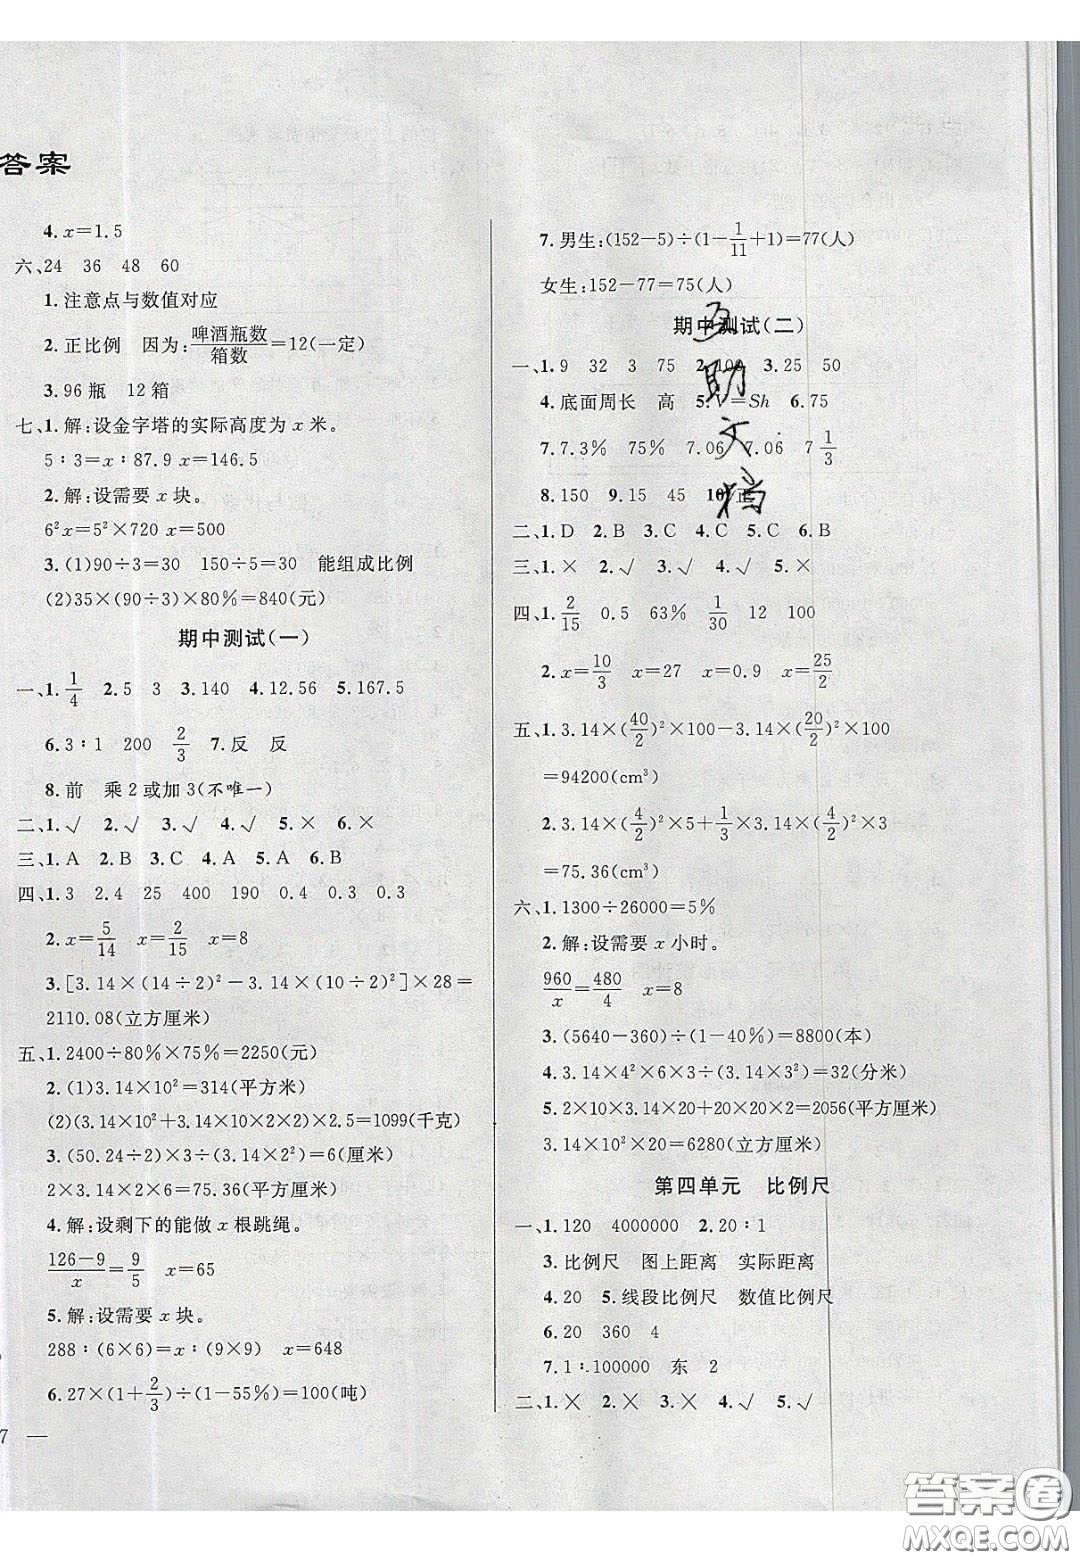 答案
4. x=1.5
六、24 36 48 60
1. 注意点与数值对应
2. 正比例 因为:啤酒瓶数/箱数=12(一定)
3. 96 瓶 12 箱
七、1. 解:设金字塔的实际高度为 x 米。
5∶3=x∶87.9 x=146.5
2. 解:设需要 x 块。
6²x=5²×720 x=500
3. (1)90÷3=30 150÷5=30 能组成比例
(2)35×(90÷3)×80%=840(元)
期中测试(一)
一、1. 1/4 2. 5 3 3. 140 4. 12.56 5. 167.5
6. 3∶1 200 2/3 7. 反 反
8. 前 乘 2 或加 3(不唯一)
二、1. √ 2. √ 3. √ 4. √ 5. × 6. ×
三、1. A 2. B 3. C 4. A 5. A 6. B
四、1. 3 2.4 25 400 190 0.4 0.3 0.3
2. x=5/14 x=2/15 x=8
3. [3.14×(14÷2)²-3.14×(10÷2)²]×28=
2110.08(立方厘米)
五、1. 2400÷80%×75%=2250(元)
2. (1)3.14×10²=314(平方米)
(2)(3.14×10²+3.14×10×2×2)×2.5=1099(千克)
3. (50.24÷2)×3÷(3.14×2²)=6(厘米)
2×3.14×2×6=75.36(平方厘米)
4. 解:设剩下的能做 x 根跳绳。
126-9/x=9/5 x=65
5. 解:设需要 x 块。
288∶(6×6)=x∶(9×9) x=648
6. 27×(1+2/3)÷(1-55%)=100(吨)
7 —
7. 男生:(152-5)÷(1-1/11+1)=77(人)
女生:152-77=75(人)
期中测试(二)
一、1. 9 32 3 75 2. 100 3. 25 50
4. 底面周长 高 5. V=Sh 6. 75
7. 7.3% 75% 7.06 7.06 7 1/3
8. 150 9. 15 45 10. 正
互助文档
二、1. D 2. B 3. C 4. C 5. C 6. B
三、1. × 2. √ 3. √ 4. √ 5. ×
四、1. 2/15 0.5 63% 1/30 12 100
2. x=10/3 x=27 x=0.9 x=25/2
五、1. 3.14×(40/2)²×100-3.14×(20/2)²×100
=94200(cm³)
2. 3.14×(4/2)²×5+1/3×3.14×(4/2)²×3
=75.36(cm³)
六、1. 1300÷26000=5%
2. 解:设需要 x 小时。
960/x=480/4 x=8
3. (5640-360)÷(1-40%)=8800(本)
4. 3.14×4²×6×3÷(3.14×3²)=32(分米)
5. 2×10×3.14×20+20×20×2=2056(平方厘米)
3.14×10²×20=6280(立方厘米)
第四单元 比例尺
一、1. 120 4000000 2. 20∶1
3. 比例尺 图上距离 实际距离
4. 20 5. 线段比例尺 数值比例尺
6. 20 360 4
7. 1∶100000 东 2
二、1. × 2. × 3. × 4. √ 5. √
答案圈
MXQE.COM